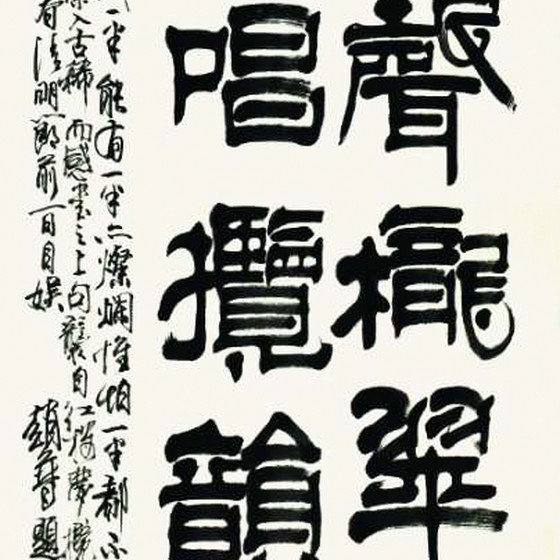 聲櫳翠
唱攬韻
一半能有一半亦燦爛惟怕一半都不
入古稀而感書之上句襲自紅樓夢櫳
春清明節前一日自娱
題